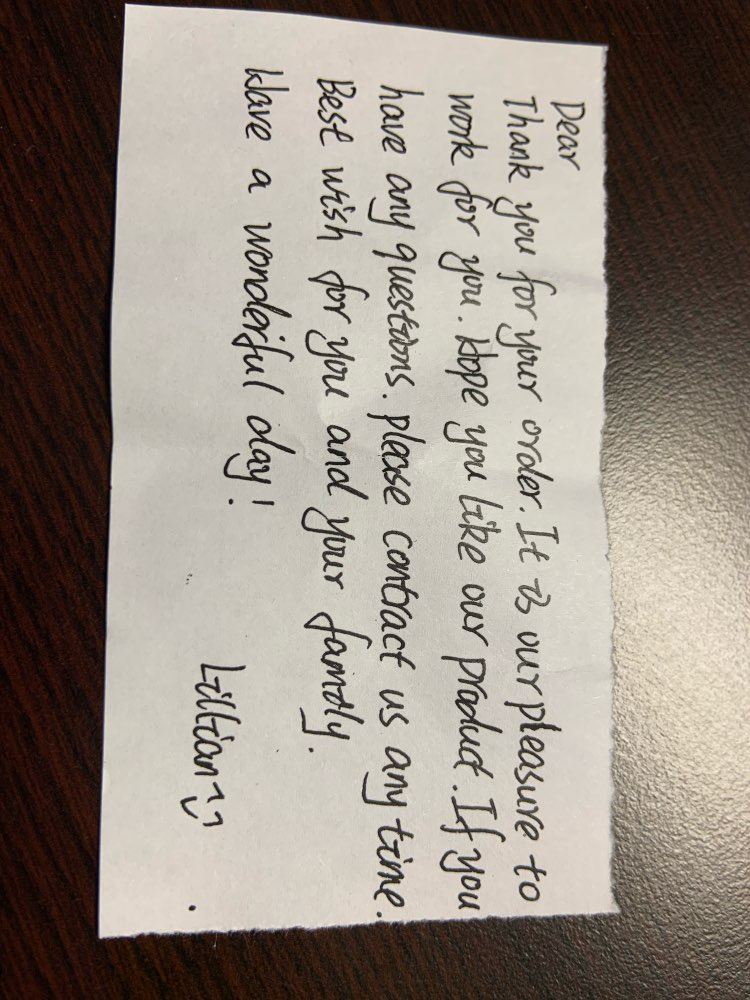 Dear
Thank you for your order. It is our pleasure to
work for you. Hope you like our product. If you
have any questions. please contract us any time.
Best wish for you and your family.
Have a wonderful day!
Lillian